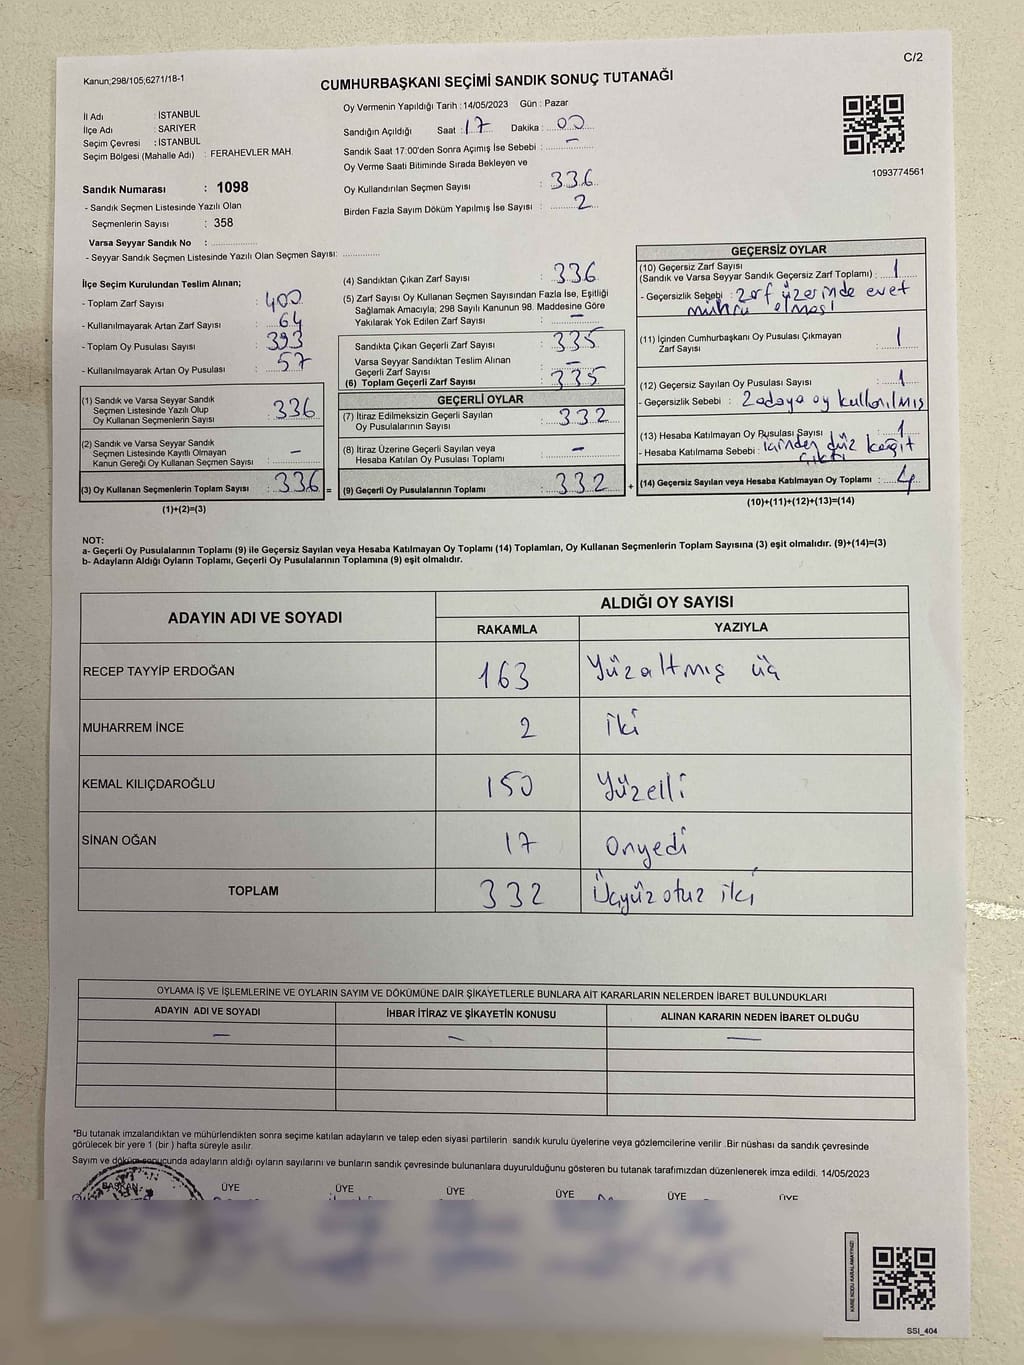 C/2
Kanun;298/105;6271/18-1
CUMHURBAŞKANI SEÇİMİ SANDIK SONUÇ TUTANAĞI
İl Adı : İSTANBUL
İlçe Adı : SARIYER
Seçim Çevresi : İSTANBUL
Seçim Bölgesi (Mahalle Adı) : FERAHEVLER MAH.
Sandık Numarası : 1098
- Sandık Seçmen Listesinde Yazılı Olan
Seçmenlerin Sayısı : 358
Varsa Seyyar Sandık No :
- Seyyar Sandık Seçmen Listesinde Yazılı Olan Seçmen Sayısı:
Oy Vermenin Yapıldığı Tarih : 14/05/2023 Gün : Pazar
Sandığın Açıldığı Saat : 17 Dakika : 00
Sandık Saat 17:00'den Sonra Açımış İse Sebebi : –
Oy Verme Saati Bitiminde Sırada Bekleyen ve
Oy Kullandırılan Seçmen Sayısı : 336
Birden Fazla Sayım Döküm Yapılmış İse Sayısı : 2
1093774561
İlçe Seçim Kurulundan Teslim Alınan;
- Toplam Zarf Sayısı : 400
- Kullanılmayarak Artan Zarf Sayısı : 64
- Toplam Oy Pusulası Sayısı : 393
- Kullanılmayarak Artan Oy Pusulası : 57
(1) Sandık ve Varsa Seyyar Sandık
Seçmen Listesinde Yazılı Olup
Oy Kullanan Seçmenlerin Sayısı : 336
(2) Sandık ve Varsa Seyyar Sandık
Seçmen Listesinde Kayıtlı Olmayan
Kanun Gereği Oy Kullanan Seçmen Sayısı : –
(3) Oy Kullanan Seçmenlerin Toplam Sayısı : 336 =
(1)+(2)=(3)
(4) Sandıktan Çıkan Zarf Sayısı : 336
(5) Zarf Sayısı Oy Kullanan Seçmen Sayısından Fazla İse, Eşitliği
Sağlamak Amacıyla; 298 Sayılı Kanunun 98. Maddesine Göre
Yakılarak Yok Edilen Zarf Sayısı : –
Sandıkta Çıkan Geçerli Zarf Sayısı : 335
Varsa Seyyar Sandıktan Teslim Alınan
Geçerli Zarf Sayısı : –
(6) Toplam Geçerli Zarf Sayısı : 335
GEÇERLİ OYLAR
(7) İtiraz Edilmeksizin Geçerli Sayılan
Oy Pusulalarının Sayısı : 332
(8) İtiraz Üzerine Geçerli Sayılan veya
Hesaba Katılan Oy Pusulası Toplamı : –
(9) Geçerli Oy Pusulalarının Toplamı : 332 +
GEÇERSİZ OYLAR
(10) Geçersiz Zarf Sayısı
(Sandık ve Varsa Seyyar Sandık Geçersiz Zarf Toplamı) : 1
- Geçersizlik Sebebi : Zarf üzerinde evet
mührü olması
(11) İçinden Cumhurbaşkanı Oy Pusulası Çıkmayan
Zarf Sayısı : 1
(12) Geçersiz Sayılan Oy Pusulası Sayısı : 1
- Geçersizlik Sebebi : 2 adaya oy kullanılmış
(13) Hesaba Katılmayan Oy Pusulası Sayısı : 1
- Hesaba Katılmama Sebebi : içinden düz kağıt
çıktı
(14) Geçersiz Sayılan veya Hesaba Katılmayan Oy Toplamı : 4
(10)+(11)+(12)+(13)=(14)
NOT:
a- Geçerli Oy Pusulalarının Toplamı (9) ile Geçersiz Sayılan veya Hesaba Katılmayan Oy Toplamı (14) Toplamları, Oy Kullanan Seçmenlerin Toplam Sayısına (3) eşit olmalıdır. (9)+(14)=(3)
b- Adayların Aldığı Oyların Toplamı, Geçerli Oy Pusulalarının Toplamına (9) eşit olmalıdır.
ADAYIN ADI VE SOYADI
ALDIĞI OY SAYISI
RAKAMLA YAZIYLA
RECEP TAYYİP ERDOĞAN 163 Yüzaltmış üç
MUHARREM İNCE 2 iki
KEMAL KILIÇDAROĞLU 150 Yüzelli
SİNAN OĞAN 17 Onyedi
TOPLAM 332 Üçyüz otuz iki
OYLAMA İŞ VE İŞLEMLERİNE VE OYLARIN SAYIM VE DÖKÜMÜNE DAİR ŞİKAYETLERLE BUNLARA AİT KARARLARIN NELERDEN İBARET BULUNDUKLARI
ADAYIN ADI VE SOYADI İHBAR İTİRAZ VE ŞİKAYETİN KONUSU ALINAN KARARIN NEDEN İBARET OLDUĞU
– – –
*Bu tutanak imzalandıktan ve mühürlendikten sonra seçime katılan adayların ve talep eden siyasi partilerin sandık kurulu üyelerine veya gözlemcilerine verilir .Bir nüshası da sandık çevresinde
görülecek bir yere 1 (bir ) hafta süreyle asılır.
Sayım ve döküm sonucunda adayların aldığı oyların sayılarını ve bunların sandık çevresinde bulunanlara duyurulduğunu gösteren bu tutanak tarafımızdan düzenlenerek imza edildi. 14/05/2023
BAŞKAN ÜYE ÜYE ÜYE ÜYE ÜYE ÜYE
KARE KODU KARALAMAYINIZ!
SSI_404